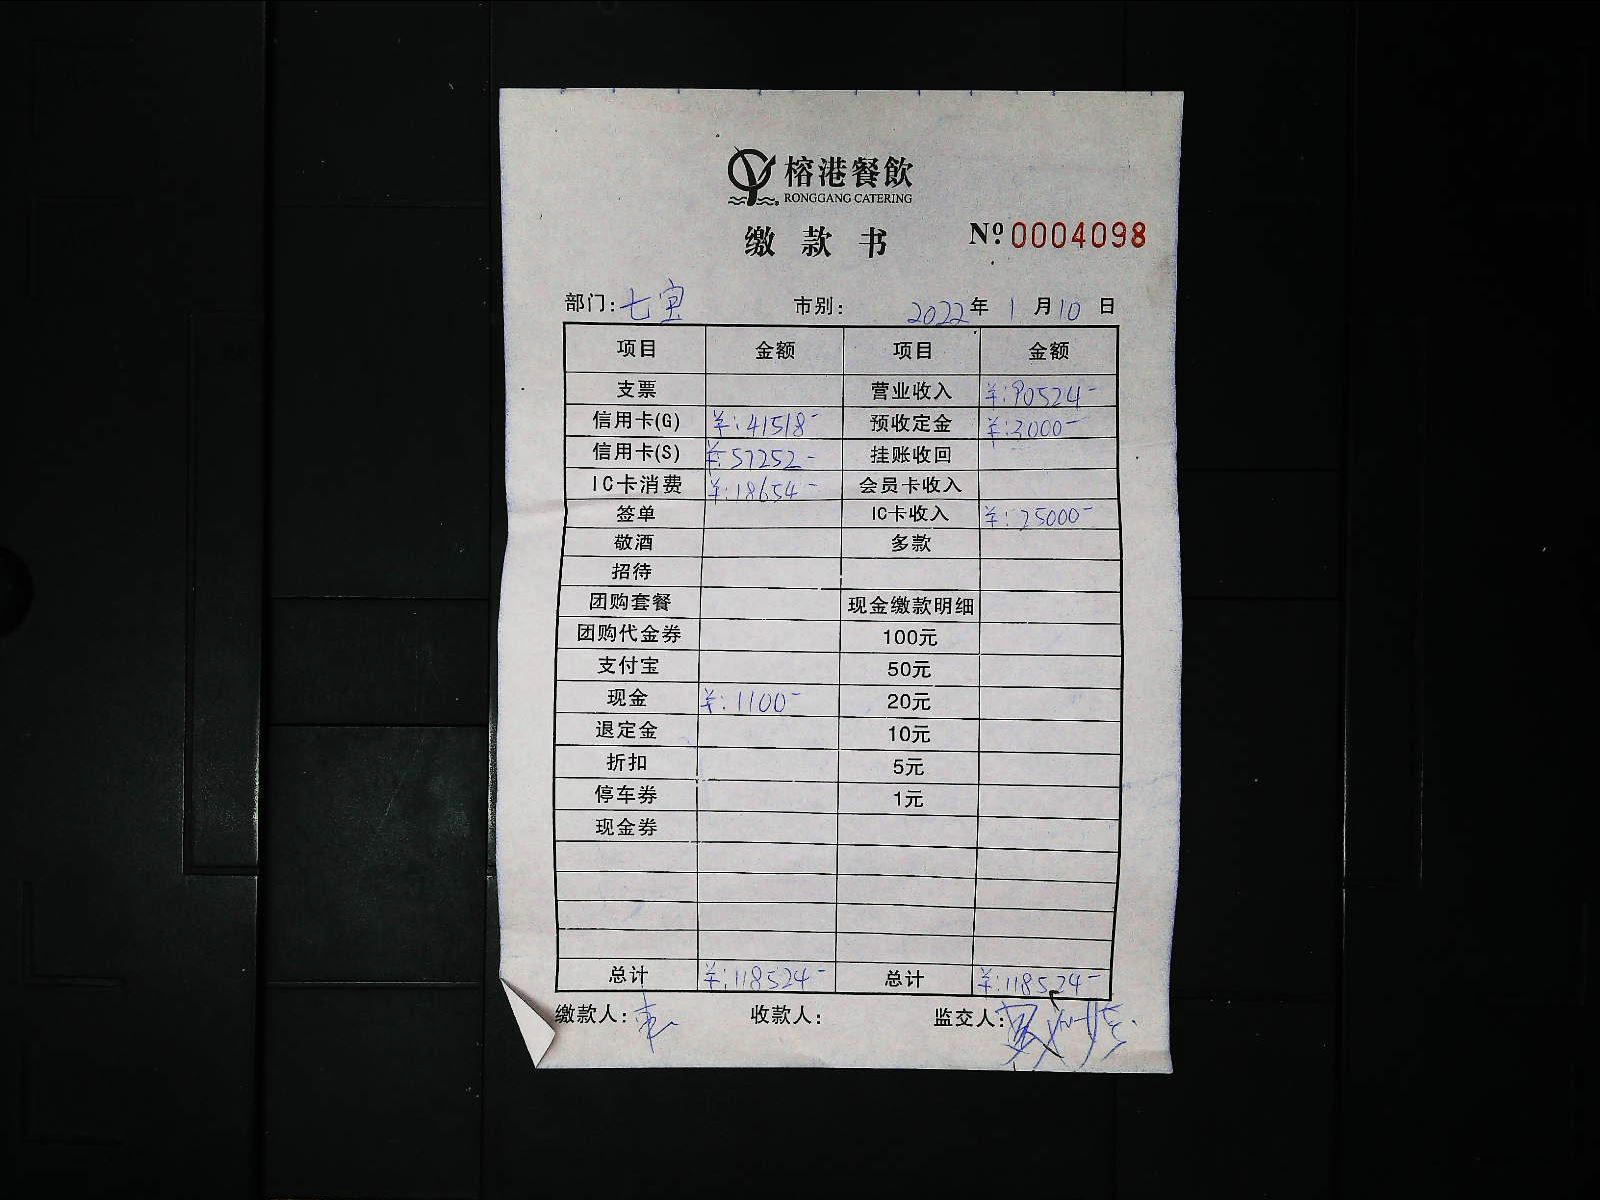 榕港餐飲
RONGGANG CATERING
缴款书 Nº 0004098
部门: 七宝 市别: 2022年 1月10日
项目 金额 项目 金额
支票 营业收入 ¥:90524-
信用卡(G) ¥:41518- 预收定金 ¥:3000-
信用卡(S) ¥:57252- 挂账收回
IC卡消费 ¥:18654- 会员卡收入
签单 IC卡收入 ¥:25000-
敬酒 多款
招待
团购套餐 现金缴款明细
团购代金券 100元
支付宝 50元
现金 ¥:1100- 20元
退定金 10元
折扣 5元
停车券 1元
现金券
总计 ¥:118524- 总计 ¥:118524-
缴款人: 收款人: 监交人: